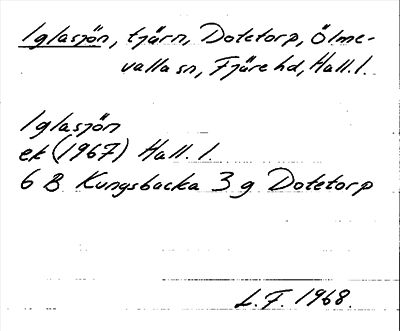 Iglasjön, tjärn, Dotetorp, Ölme-
valla sn, Fjäre hd, Hall. l.
Iglasjön
ek (1967) Hall. l.
6 B Kungsbacka 3 g Dotetorp
L.F. 1968.